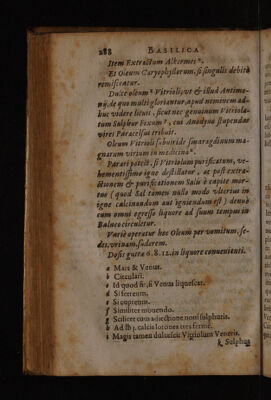 288 BASILICA
Item Extractum Alkermes *.
Et Oleum Caryophyllorum, si singulis debitò
remisceatur.
Dulce oleum Vitrioli, ut & illud Antimo-
nij, de quo multi gloriantur, apud neminem ad-
huc videre licuit, sicut nec genuinum Vitriola-
tum Sulphur Fixum, cui Anodyna stupendas
vires Paracelsus tribuit.
Oleum Vitrioli subuiride smaragdinum ma-
gnarum virium in medicina.
Parari potest, si Vitriolum purificatum, ve-
hementissimo igne destillatur, ac post extra-
ctionem & purificationem Salis è capite mor-
tuo (quod Sal tamen nullo modo vlterius in
igne calcinandum aut igniendum est) denuò
cum omni egresso liquore ad suum tempus in
Balneo circuletur.
Variè operatur hoc Oleum per vomitum, se-
des, vrinam, sudorem.
Dosis guttæ 6. 8. 12. in liquore conuenienti.
a Mars & Venus.
b Circulari.
c Id quod fit, si Venus liquescat.
d Si ferreum.
e Si cupreum.
f Similiter mouendo.
g Scilicet cum adiectione noui sulphuris.
h Ad lb j. calcis lotones tres fermè.
i Magis tamen dulcescit Vitriolum Veneris.
k Sulphur